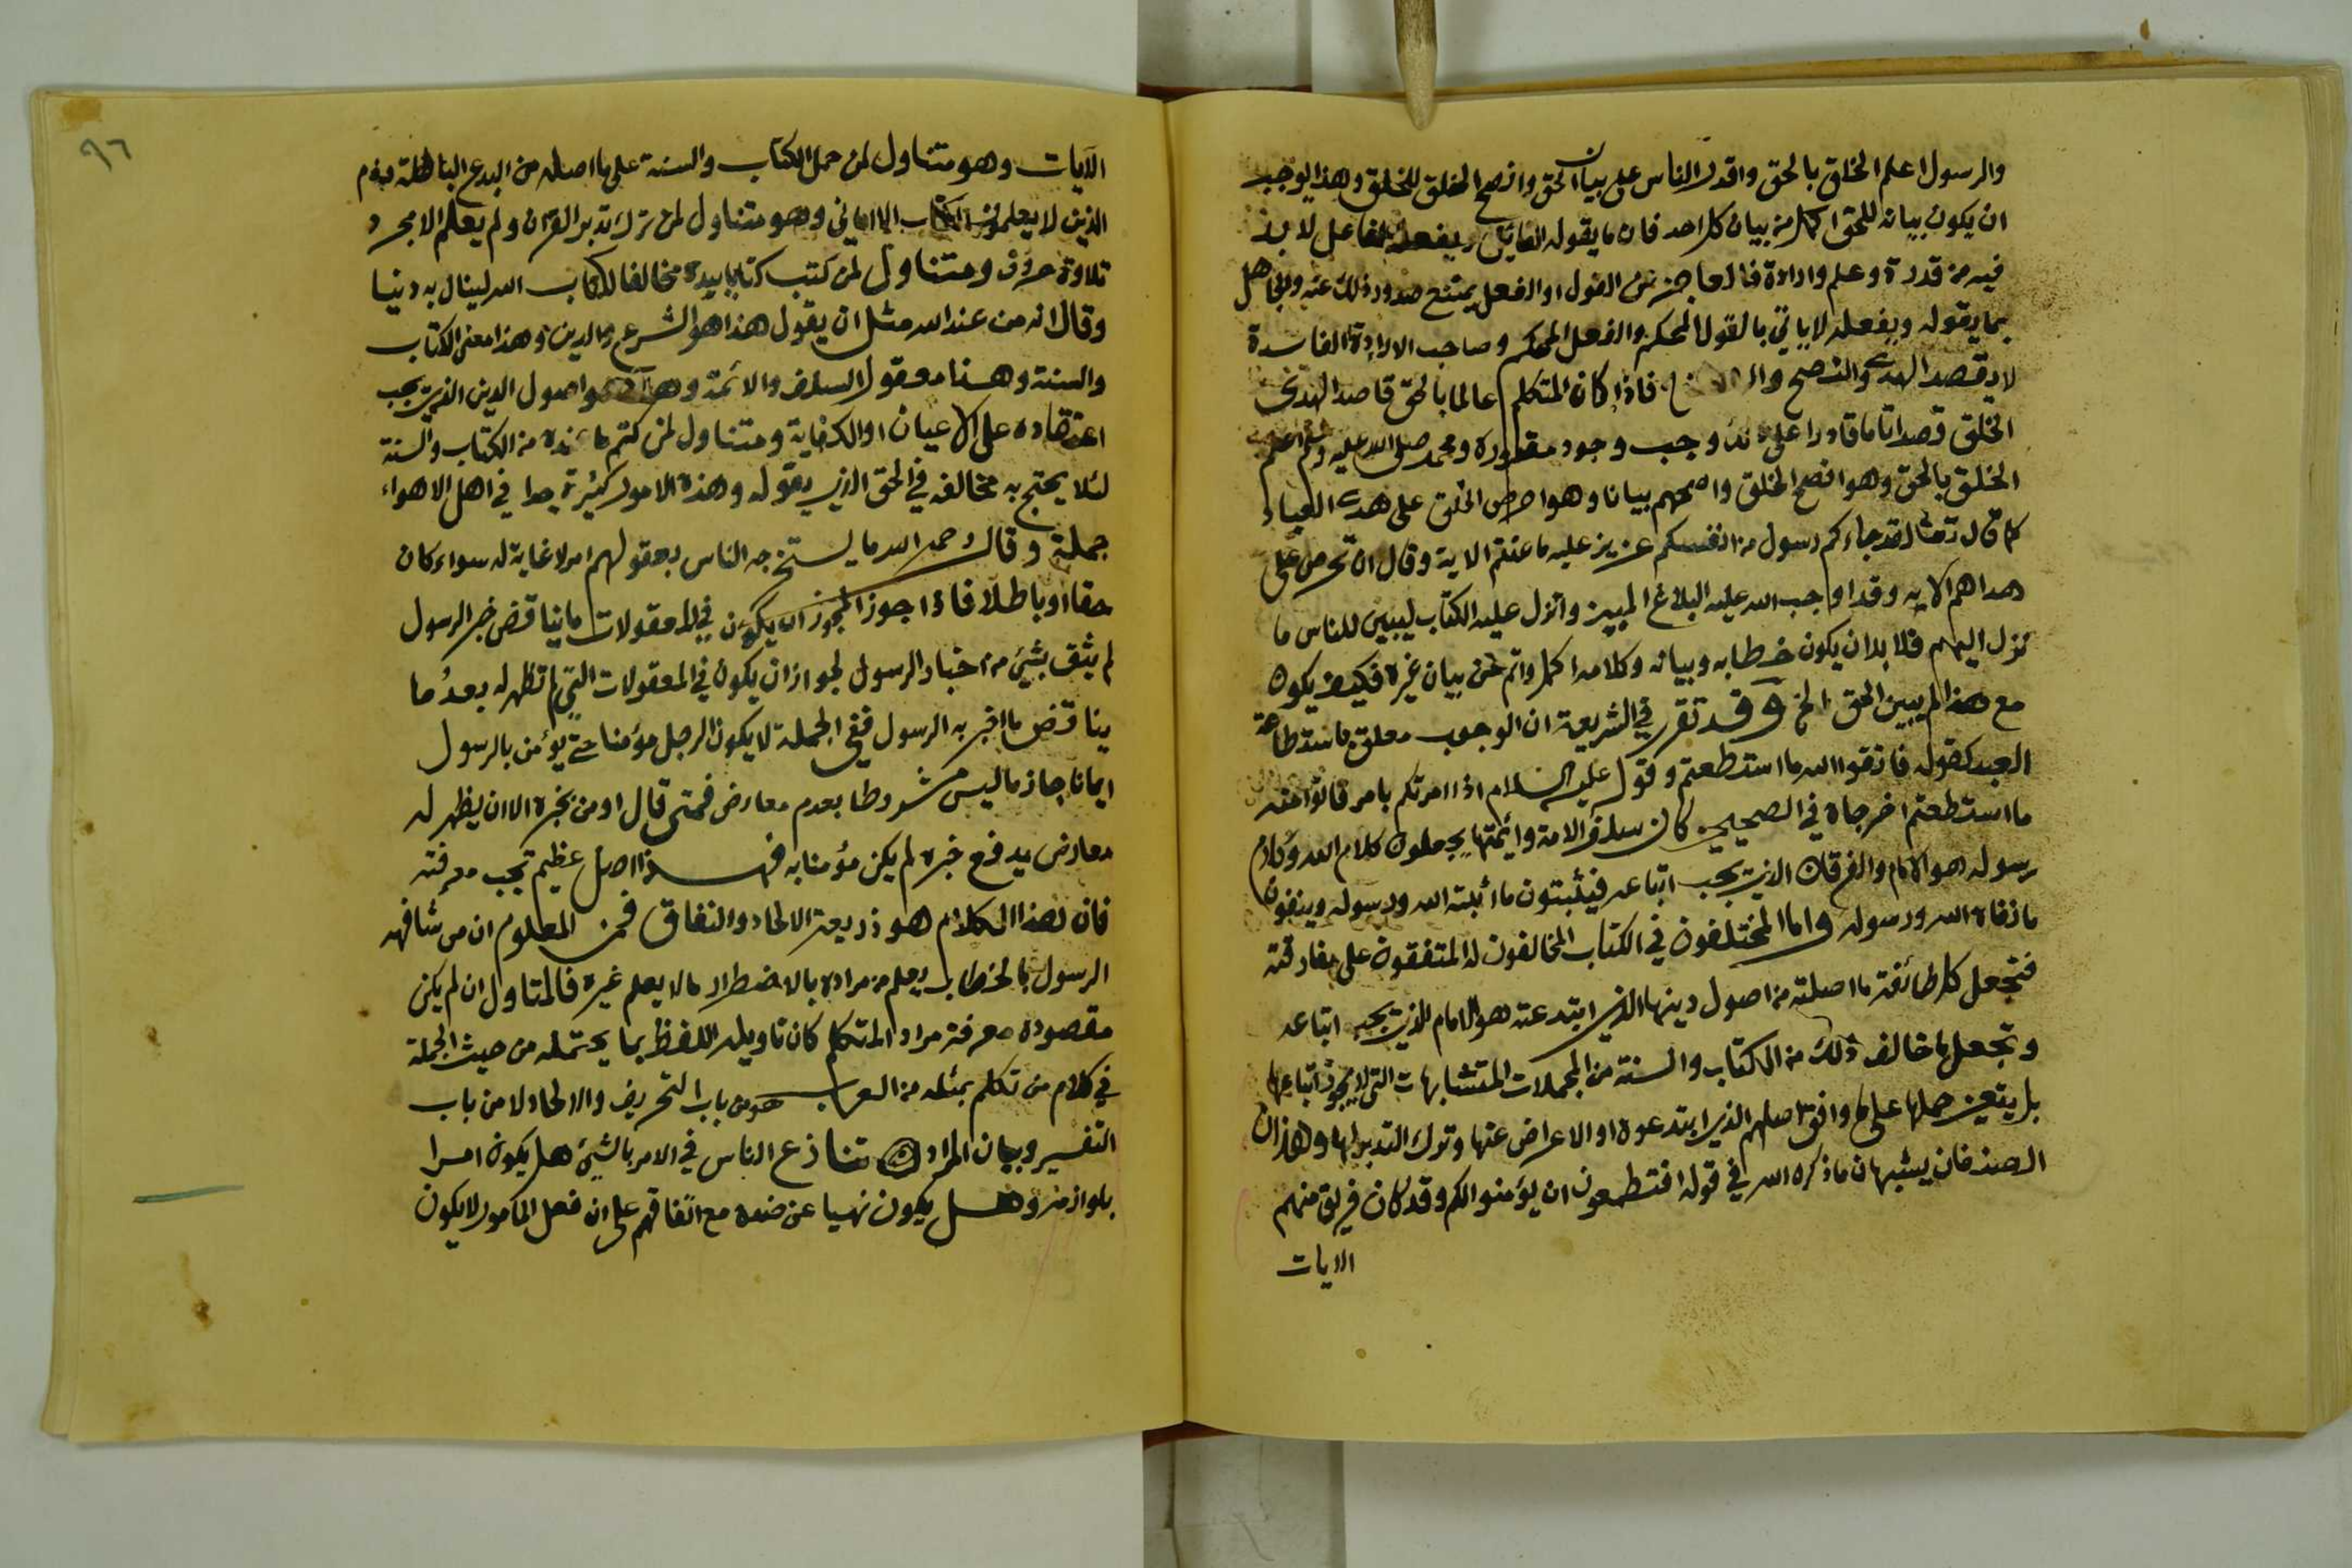 والرسول اعلم الخلق بالحق واقدر الناس على بيان الحق وانصح الخلق للخلق وهذا يوجب
ان يكون بيانه للحق اكمل من بيان كل احد فان ما يقوله القائل ويفعله الفاعل لا بد
فيه من قدرة وعلم وارادة فالعاجز عن القول او الفعل يمتنع صدور ذلك عنه والجاهل
بما يقوله ويفعله لا ياتي بالقول المحكم والفعل المحكم وصاحب الارادة الفاسدة
لا يقصد الهدى والنصح وال فاذا كان المتكلم عالما بالحق قاصدا لهدى
الخلق قصدا تاما قادرا على ذلك وجب وجود مقدوره ومحمد صلى الله عليه وسلم اعلم
الخلق بالحق وهو افصح الخلق واصحهم بيانا وهو احرص الخلق على هدى العباد
كما قال تعالى لقد جاءكم رسول من انفسكم عزيز عليه ما عنتم الاية وقال ان تحرص على
هداهم الايه وقد اوجب الله عليه البلاغ المبين وانزل عليه الكتاب ليبين للناس ما
نزل اليهم فلا بد ان يكون خطابه وبيانه وكلامه اكمل واتم من بيان غيره فكيف يكون
مع هذا لم يبين الحق الخ وقد تقرر في الشريعة ان الوجوب معلق باستطاعة
العبد كقوله فاتقوا الله ما استطعتم وقول عليه السلام اذا امرتكم بامر فاتوا منه
ما استطعتم اخرجاه في الصحيحين كان سلف الامة وائمتها يجعلون كلام الله وكلام
رسوله هو الامام والفرقان الذي يجب اتباعه فيثبتون ما اثبته الله ورسوله وينفون
ما نفاه الله ورسوله واما المختلفون في الكتاب المخالفون له المتفقون على مفارقته
فتجعل كل طائفة ما اصلته من اصول دينها الذي ابتدعته هو الامام الذي يجب اتباعه
وتجعل ما خالف ذلك من الكتاب والسنة من المجملات المتشابهات التي لا يجوز اتباعها
بل يتعين حملها على ما وافق اصلهم الذي ابتدعوه او الاعراض عنها وترك التدبر لها وهذان
الصنفان يشبهان ما ذكره الله في قوله افتطمعون ان يؤمنوا لكم وقد كان فريق منهم
الايات
٩٦
الآيات وهو متناول لمن حمل الكتاب والسنة على ما اصله من البدع الباطلة وذم
الذين لا يعلمون الكتاب الا اماني وهو متناول لمن ترك تدبر القران ولم يعلم الا مجرد
تلاوة حروف ومتناول لمن كتب كتابا بيده مخالفا لكتاب الله لينال به دنيا
وقال انه من عند الله مثل ان يقول هذا هو الشرع والدين وهذا معنى الكتاب
والسنة وهذا معقول السلف والائمة وهذا هو اصول الدين الذي يجب
اعتقاده على الاعيان او الكفاية ومتناول لمن كتم ما عنده من الكتاب والسنة
لئلا يحتج به مخالفه في الحق الذي يقوله وهذه الامور كثيرة جدا في اهل الاهواء
جملة وقال رحمه الله ما يستخرجه الناس بعقولهم امر لا غاية له سواء كان
حقا او باطلا فاذا جوز المجوز ان يكون في المعقولات ما يناقض خبر الرسول
لم يثق بشيئ من اخبار الرسول لجواز ان يكون في المعقولات التي لم تظهر له بعد ما
يناقض ما اخبر به الرسول ففي الجملة لا يكون الرجل مؤمنا حتى يؤمن بالرسول
ايمانا جازما ليس مشروطا بعدم معارض فمتى قال اومن بخبره الا ان يظهر له
معارض يدفع خبره لم يكن مؤمنا به فهذا اصل عظيم تجب معرفته
فان هذا الكلام هو ذريعة الالحاد والنفاق فمن المعلوم ان من شافهه
الرسول بالخطاب يعلم من مراده بالاضطرار ما لا يعلم غيره فالمتاول ان لم يكن
مقصوده معرفة مراد المتكلم كان تاويله اللفظ بما يحتمله من حيث الجملة
في كلام من تكلم بمثله من العرب هو من باب التحريف والالحاد لا من باب
التفسير وبيان المراد تنازع الناس في الامر بالشيئ هل يكون امرا
بلوازمه وهل يكون نهيا عن ضده مع اتفاقهم على ان فعل المأمور لا يكون